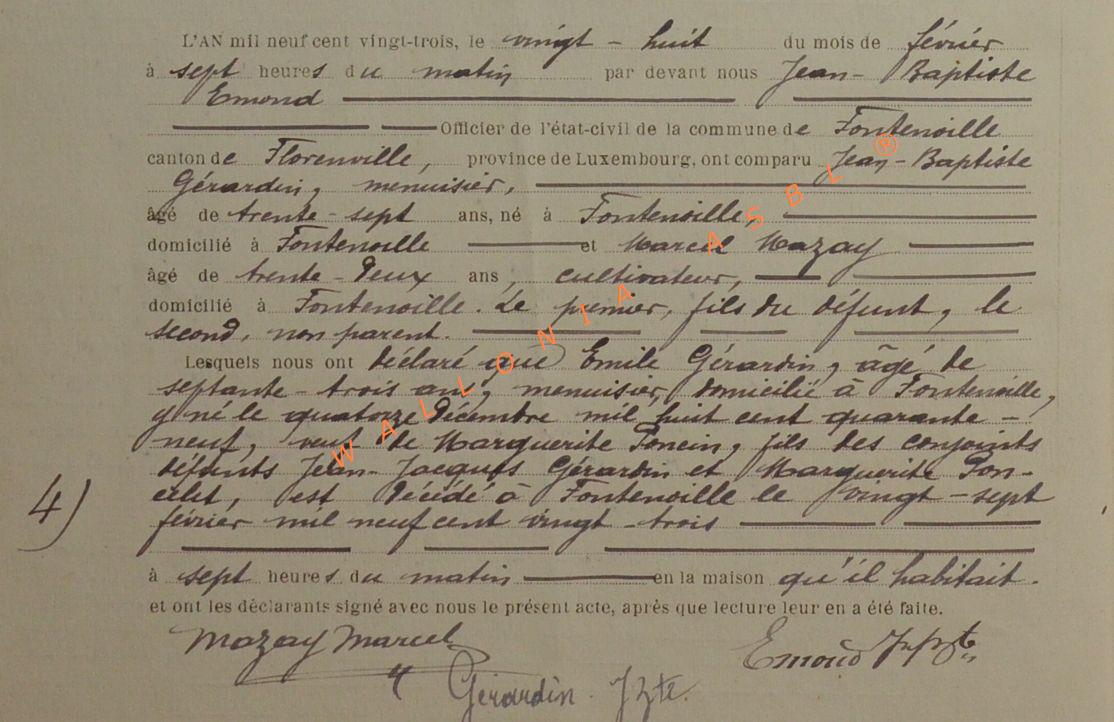 L'AN mil neuf cent vingt-trois, le vingt - huit du mois de février
à sept heures du matin par devant nous Jean - Baptiste
Emond
Officier de l'état-civil de la commune de Fontenoille
canton de Florenville, province de Luxembourg, ont comparu Jean - Baptiste
Gérardin, menuisier,
âgé de trente - sept ans, né à Fontenoille,
domicilié à Fontenoille et Marcel Mazay
âgé de trente - deux ans, cultivateur,
domicilié à Fontenoille. Le premier, fils du défunt, le
second, non parent.
Lesquels nous ont déclaré que Emile Gérardin, âgé de
septante - trois ans, menuisier, domicilié à Fontenoille,
y né le quatorze décembre mil huit cent quarante -
neuf, veuf de Marguerite Poncin, fils des conjoints
défunts Jean - Jacques Gérardin et Marguerite Pon-
celet, est décédé à Fontenoille le vingt - sept
4)
février mil neuf cent vingt - trois
à sept heures du matin en la maison qu'il habitait.
et ont les déclarants signé avec nous le présent acte, après que lecture leur en a été faite.
Mazay Marcel
Emond J. Bte
Gérardin. J Bte.
WALLONIA ASBL ®